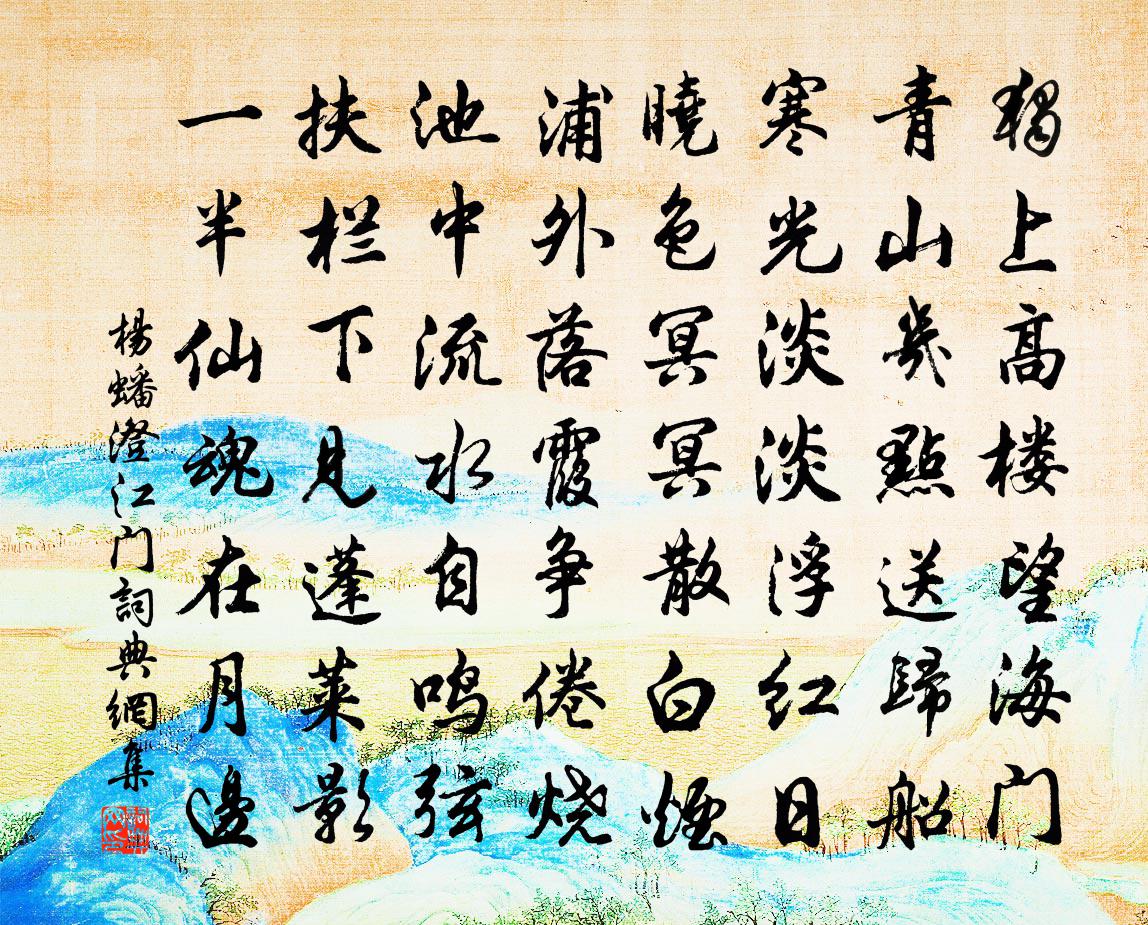 獨上高楼望海门
青山幾點送歸船
寒光淡淡浮红日
曉色冥冥散白煙
浦外落霞争倦烧
池中流水自鸣弦
扶栏下見蓬莱影
一半仙魂在月邊
楊蟠澄江门詞典網集